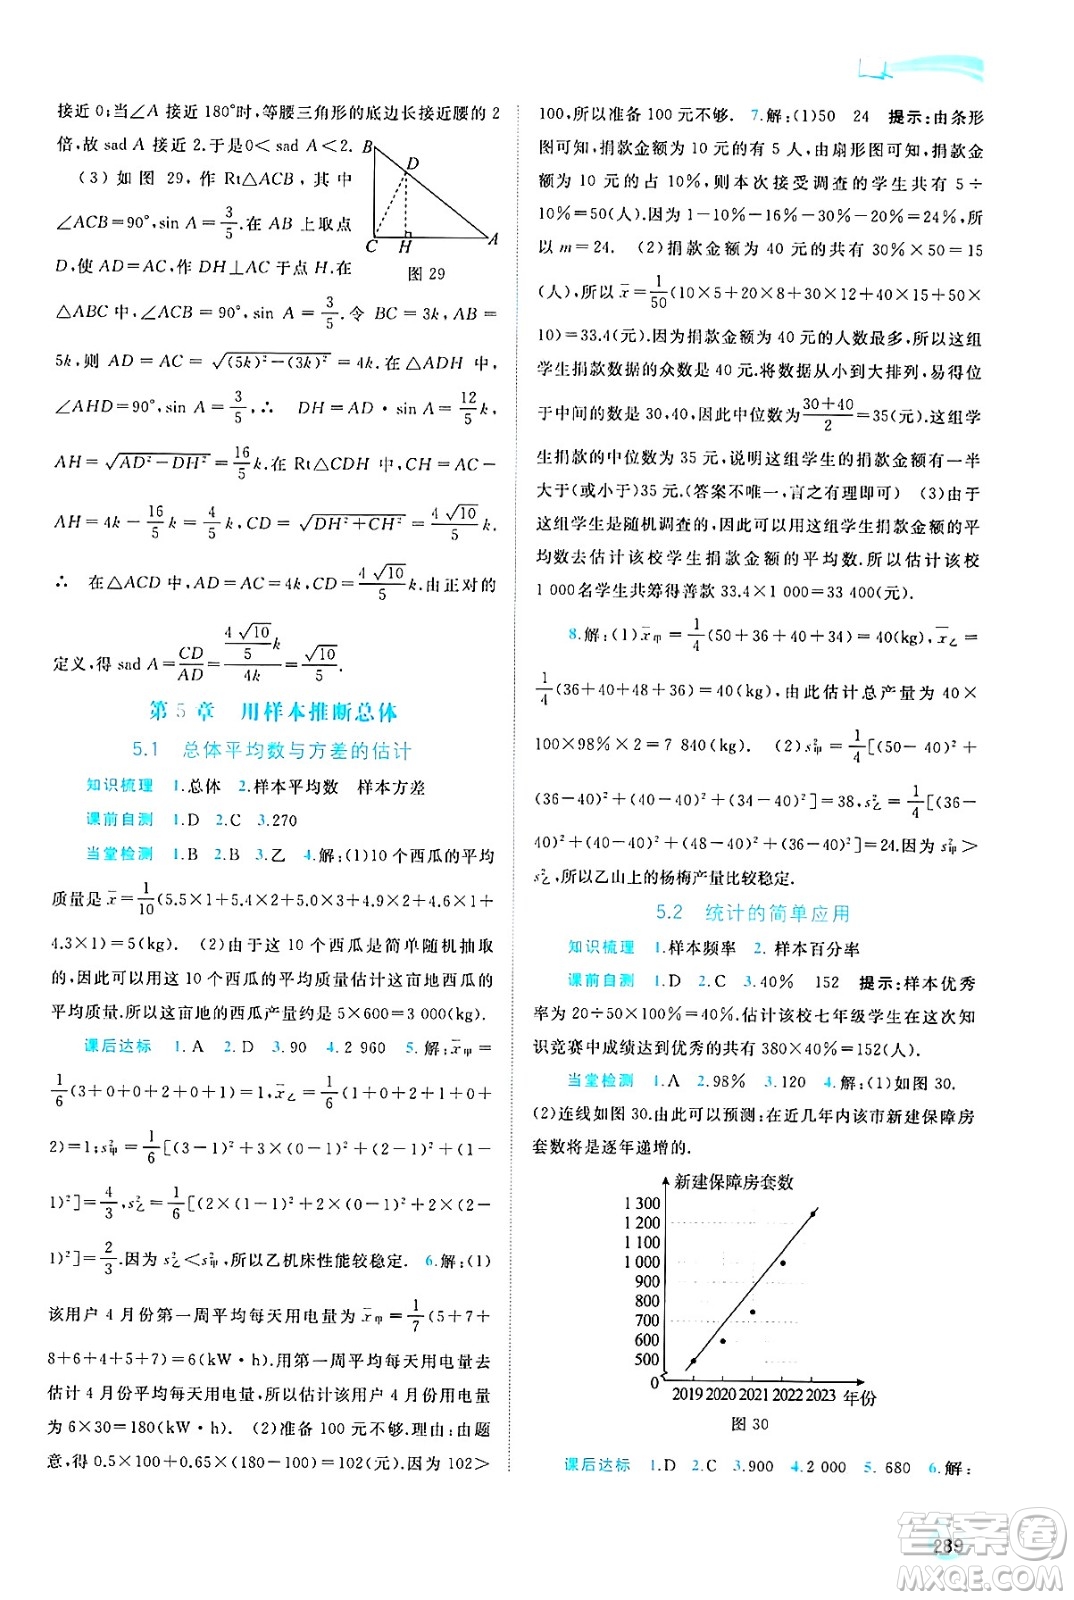 接近 0;当∠A 接近 180°时,等腰三角形的底边长接近腰的 2
倍,故 sad A 接近 2.于是 0< sad A<2.
(3) 如 图 29, 作 Rt△ACB, 其 中
∠ACB=90°,sin A=3/5.在 AB 上取点
D,使 AD=AC,作 DH⊥AC 于点 H.在
△ABC 中,∠ACB=90°,sin A=3/5.令 BC=3k,AB=
5k,则 AD=AC=√((5k)²-(3k)²)=4k.在△ADH 中,
∠AHD=90°,sin A=3/5,∴ DH=AD·sin A=12/5k,
AH=√(AD²-DH²)=16/5k.在 Rt△CDH 中,CH=AC-
AH=4k-16/5k=4/5k,CD=√(DH²+CH²)=4√10/5k.
∴ 在△ACD 中,AD=AC=4k,CD=4√10/5k.由正对的
定义,得 sad A=CD/AD=(4√10/5k)/4k=√10/5.
B
D
C
H
A
图 29
第 5 章 用样本推断总体
5.1 总体平均数与方差的估计
知识梳理 1.总体 2.样本平均数 样本方差
课前自测 1.D 2.C 3.270
当堂检测 1.B 2.B 3.乙 4.解:(1)10 个西瓜的平均
质量是 x̄=1/10(5.5×1+5.4×2+5.0×3+4.9×2+4.6×1+
4.3×1)=5(kg). (2)由于这 10 个西瓜是简单随机抽取
的,因此可以用这 10 个西瓜的平均质量估计这亩地西瓜的平均
质量.所以这亩地的西瓜产量约是 5×600=3 000(kg).
课后达标 1.A 2.D 3.90 4.2 960 5.解:x̄甲=
1/6(3+0+0+2+0+1)=1,x̄乙=1/6(1+0+2+1+0+
2)=1;s²甲=1/6[(3-1)²+3×(0-1)²+(2-1)²+(1-1)²]
=4/3,s²乙=1/6[(2×(1-1)²+2×(0-1)²+2×(2-
1)²]=2/3.因为 s²乙<s²甲,所以乙机床性能较稳定. 6.解:(1)
该用户 4 月份第一周平均每天用电量为 x̄甲=1/7(5+7+
8+6+4+5+7)=6(kW·h).用第一周平均每天用电量去
估计 4 月份平均每天用电量,所以估计该用户 4 月份用电量
为 6×30=180(kW·h). (2)准备 100 元不够.理由:由题
意,得 0.5×100+0.65×(180-100)=102(元).因为 102>
100,所以准备 100 元不够. 7.解:(1)50 24 提示:由条形
图可知,捐款金额为 10 元的有 5 人,由扇形图可知,捐款金
额为 10 元的占 10%,则本次接受调查的学生共有 5÷
10%=50(人).因为 1-10%-16%-30%-20%=24%,所
以 m=24. (2)捐款金额为 40 元的共有 30%×50=15
(人),所以 x̄=1/50(10×5+20×12+30×8+40×15+50×
10)=33.4(元).因为捐款金额为 40 元的人数最多,所以这组
学生捐款数据的众数是 40 元.将数据从小到大排列,易得位
于中间的数是 30,40,因此中位数为(30+40)/2=35(元).这组学
生捐款的中位数为 35 元,说明这组学生的捐款金额有一半
大于(或小于)35 元.(答案不唯一,言之有理即可) (3)由于
这组学生是随机调查的,因此可以用这组学生捐款金额的平
均数去估计该校学生捐款金额的平均数.所以估计该校
1 000名学生共筹得善款 33.4×1 000=33 400(元).
8.解:(1)x̄甲=1/4(50+36+40+34)=40(kg),x̄乙=
1/4(36+40+48+36)=40(kg),由此估计总产量为 40×
100×98%×2=7 840(kg). (2)s²甲=1/4[(50-40)²+
(36-40)²+(40-40)²+(34-40)²]=38,s²乙=1/4[(36-
40)²+(40-40)²+(48-40)²+(36-40)²]=24.因为 s²甲>
s²乙,所以乙山上的杨梅产量比较稳定.
5.2 统计的简单应用
知识梳理 1.样本频率 2.样本百分率
课前自测 1.D 2.C 3.40% 152 提示:样本优秀
率为 20÷50×100%=40%.估计该校七年级学生在这次知
识竞赛中成绩达到优秀的共有 380×40%=152(人).
当堂检测 1.A 2.98% 3.120 4.解:(1)如图 30.
(2)连线如图 30.由此可以预测:在近几年内该市新建保障房
套数将是逐年递增的.
新建保障房套数
1 300
1 200
1 100
1 000
900
800
700
600
500
0
2019 2020 2021 2022 2023 年份
图 30
课后达标 1.D 2.C 3.900 4.2 000 5. 680 6.解:
289
答案圈
MXQE.COM